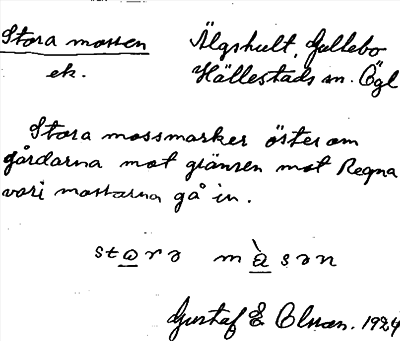 Stora mossen
Älgshult, Gullebo
ek.
Hällestads sn. Ögl
Stora mossmarker öster om
gårdarna mot gränsen mot Regna
vari mossarna gå in.
stɷrə mὰsən
Gustaf E Olsson. 1924